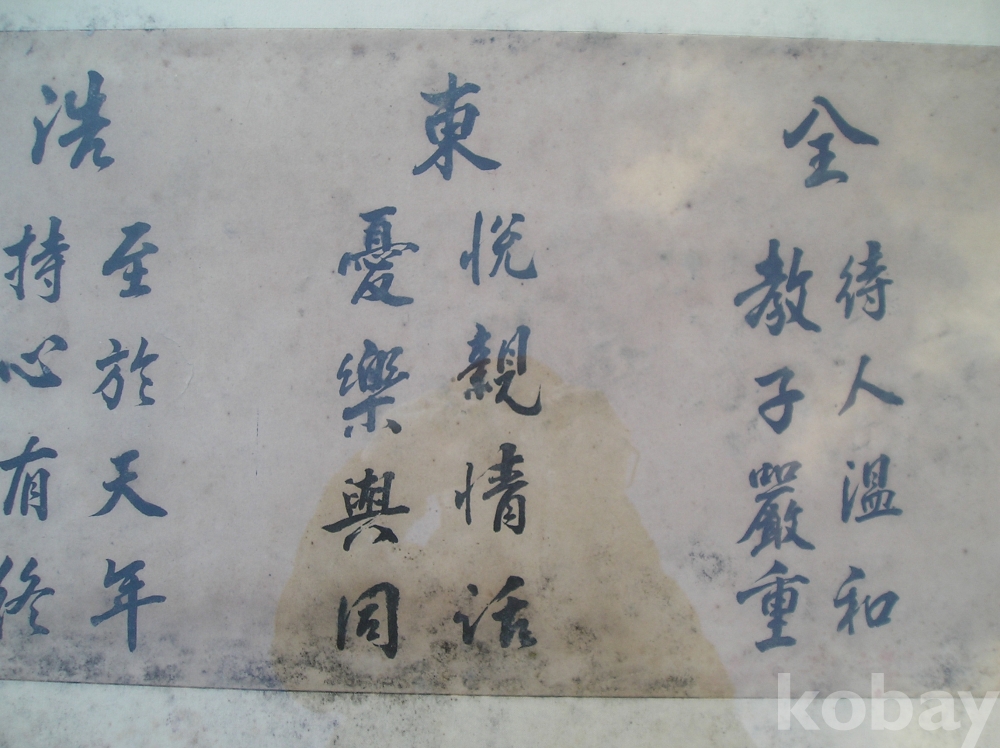 全
待人溫和
教子嚴重
東
悅親情話
憂樂與同
浩
至於天年
持心有終
kobay